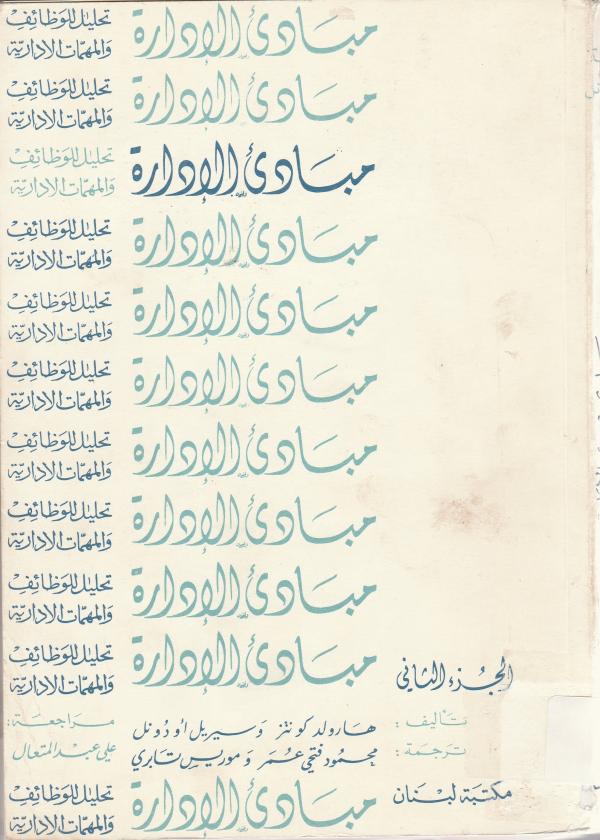 مبادئ الإدارة
تحليل للوظائف
والمهمّات الاداريّة
مبادئ الإدارة
تحليل للوظائف
والمهمّات الاداريّة
مبادئ الإدارة
تحليل للوظائف
والمهمّات الاداريّة
مبادئ الإدارة
تحليل للوظائف
والمهمّات الاداريّة
مبادئ الإدارة
تحليل للوظائف
والمهمّات الاداريّة
مبادئ الإدارة
تحليل للوظائف
والمهمّات الاداريّة
مبادئ الإدارة
تحليل للوظائف
والمهمّات الاداريّة
مبادئ الإدارة
تحليل للوظائف
والمهمّات الاداريّة
مبادئ الإدارة
تحليل للوظائف
والمهمّات الاداريّة
مبادئ الإدارة
تحليل للوظائف
والمهمّات الاداريّة
الجزء الثاني
تأليف: هارولد كونتز وسيريل اودونل مراجعة:
ترجمة: محمود فتحي عمر وموريس تابري علي عبد المتعال
مكتبة لبنان
مبادئ الإدارة
تحليل للوظائف
والمهمّات الاداريّة